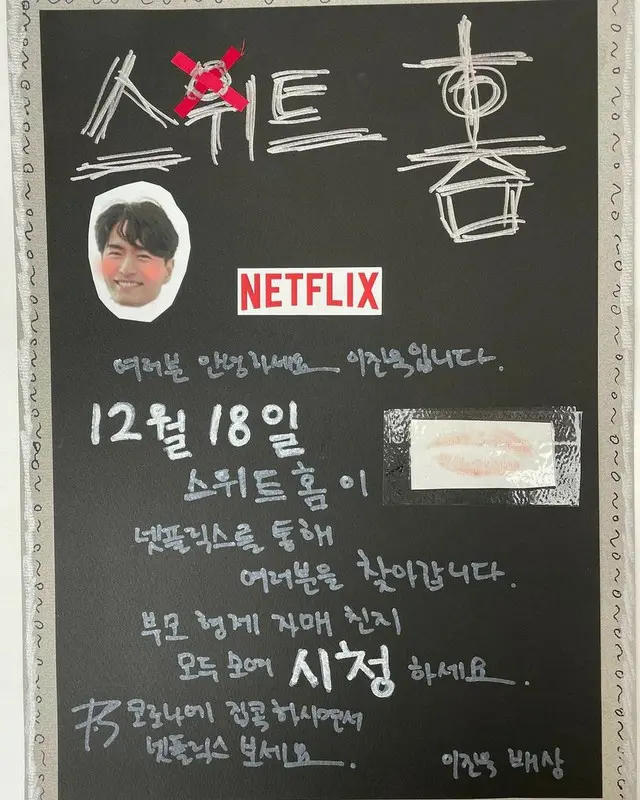 스위트 홈
NETFLIX
여러분 안녕하세요 이진욱입니다.
12월 18일
스위트홈이
넷플릭스를 통해
여러분을 찾아갑니다.
부모 형제 자매 친지
모두 모여 시청 하세요.
코로나에 집콕하시면서
넷플릭스 보세요.
이진욱 배상